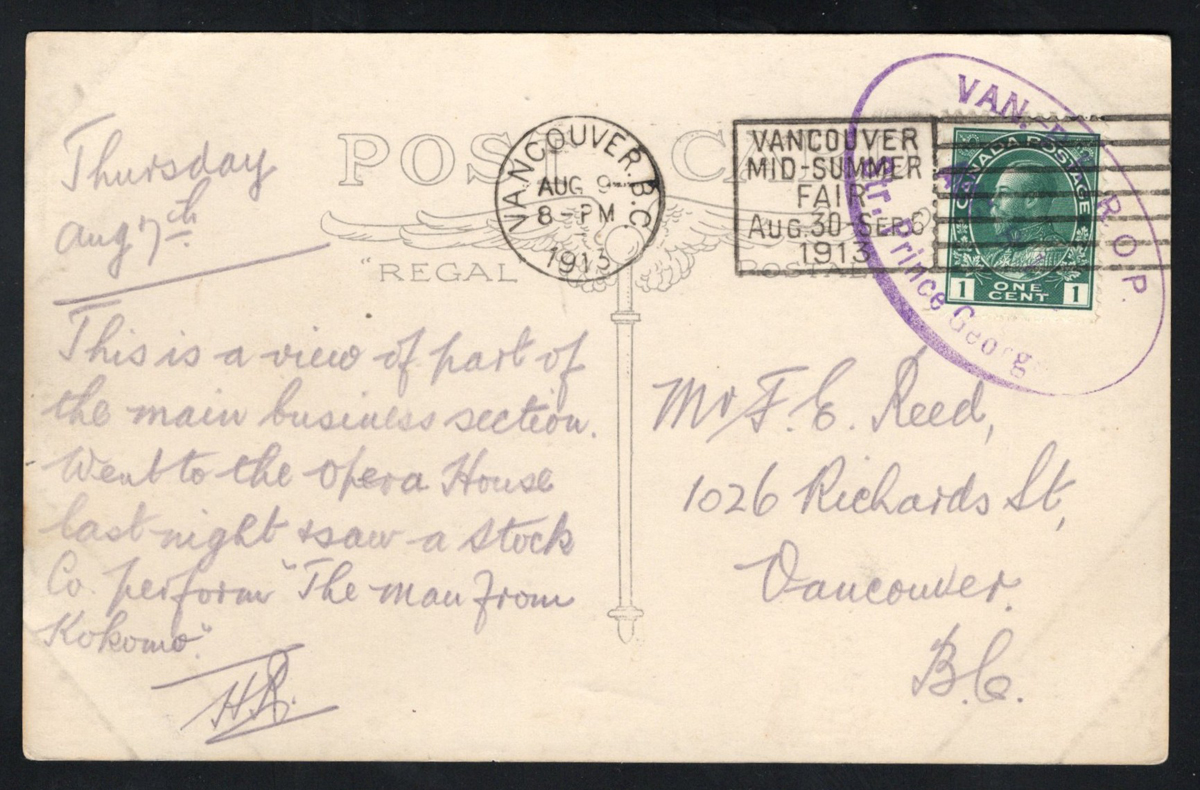 POST CA
"REGAL
POSTAL
VANCOUVER. B.C.
AUG 9
8-PM
1913
VANCOUVER
MID-SUMMER
FAIR
AUG.30-SEP.6
1913
VAN. R.O.P
Str. Prince Georg
CANADA POSTAGE
1 ONE CENT 1
Thursday
Aug 7th
This is a view of part of
the main business section.
Went to the Opera House
last night & saw a stock
Co. perform "The man from
Kokomo".
HR.
Mr F. E. Reed,
1026 Richards St,
Vancouver.
B.C.